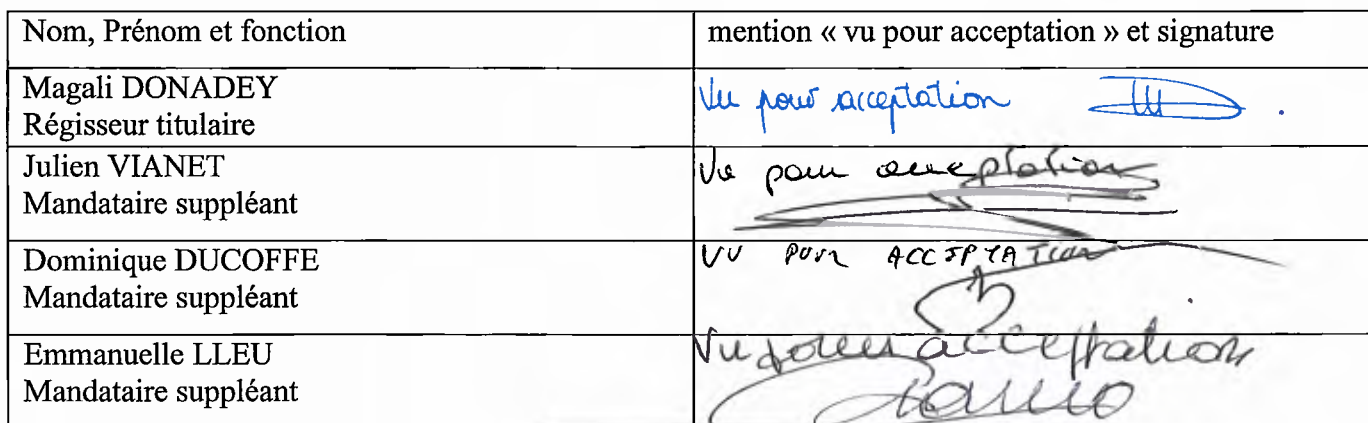 Nom, Prénom et fonction
mention « vu pour acceptation » et signature
Magali DONADEY
Régisseur titulaire
Vu pour acceptation
Julien VIANET
Mandataire suppléant
Vu pour acceptation
Dominique DUCOFFE
Mandataire suppléant
VU POUR ACCEPTATION
Emmanuelle LLEU
Mandataire suppléant
Vu pour acceptation